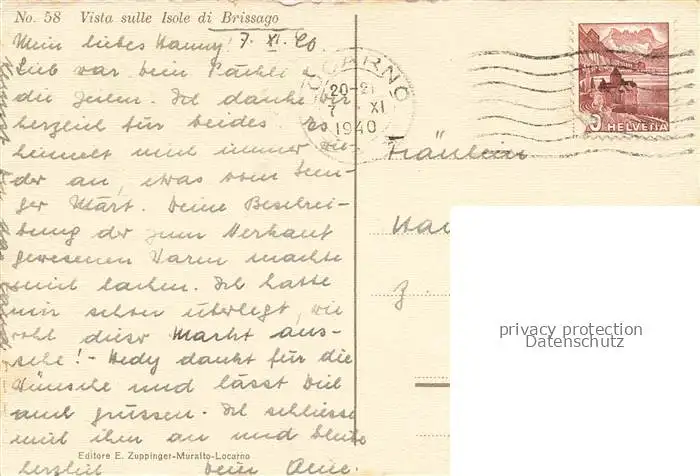 No. 58 Vista sulle Isole di Brissago
Mein liebes Hanny! 7. XI. 40.
Lieb war dein Päckli &
die Zeilen. Ich danke dir
herzlich für beides es
heimelt mich immer wie-
der an, etwas vom
Märt. Deine Beschrei-
bung der zum Verkauf
gewesenen Waren machte
mich lachen. Ich hatte
mir schon überlegt, wie
wohl dieser Markt aus-
sehe! - Hedy dankt für die
Wünsche und lässt Dich
auch grüssen. Ich schliesse
mich ihm an und bleibe
herzlich Deine
Editore E. Zuppinger-Muralto-Locarno
LOCARNO
20-21
7 . XI
1940
HELVETIA
Fräulein
privacy protection
Datenschutz